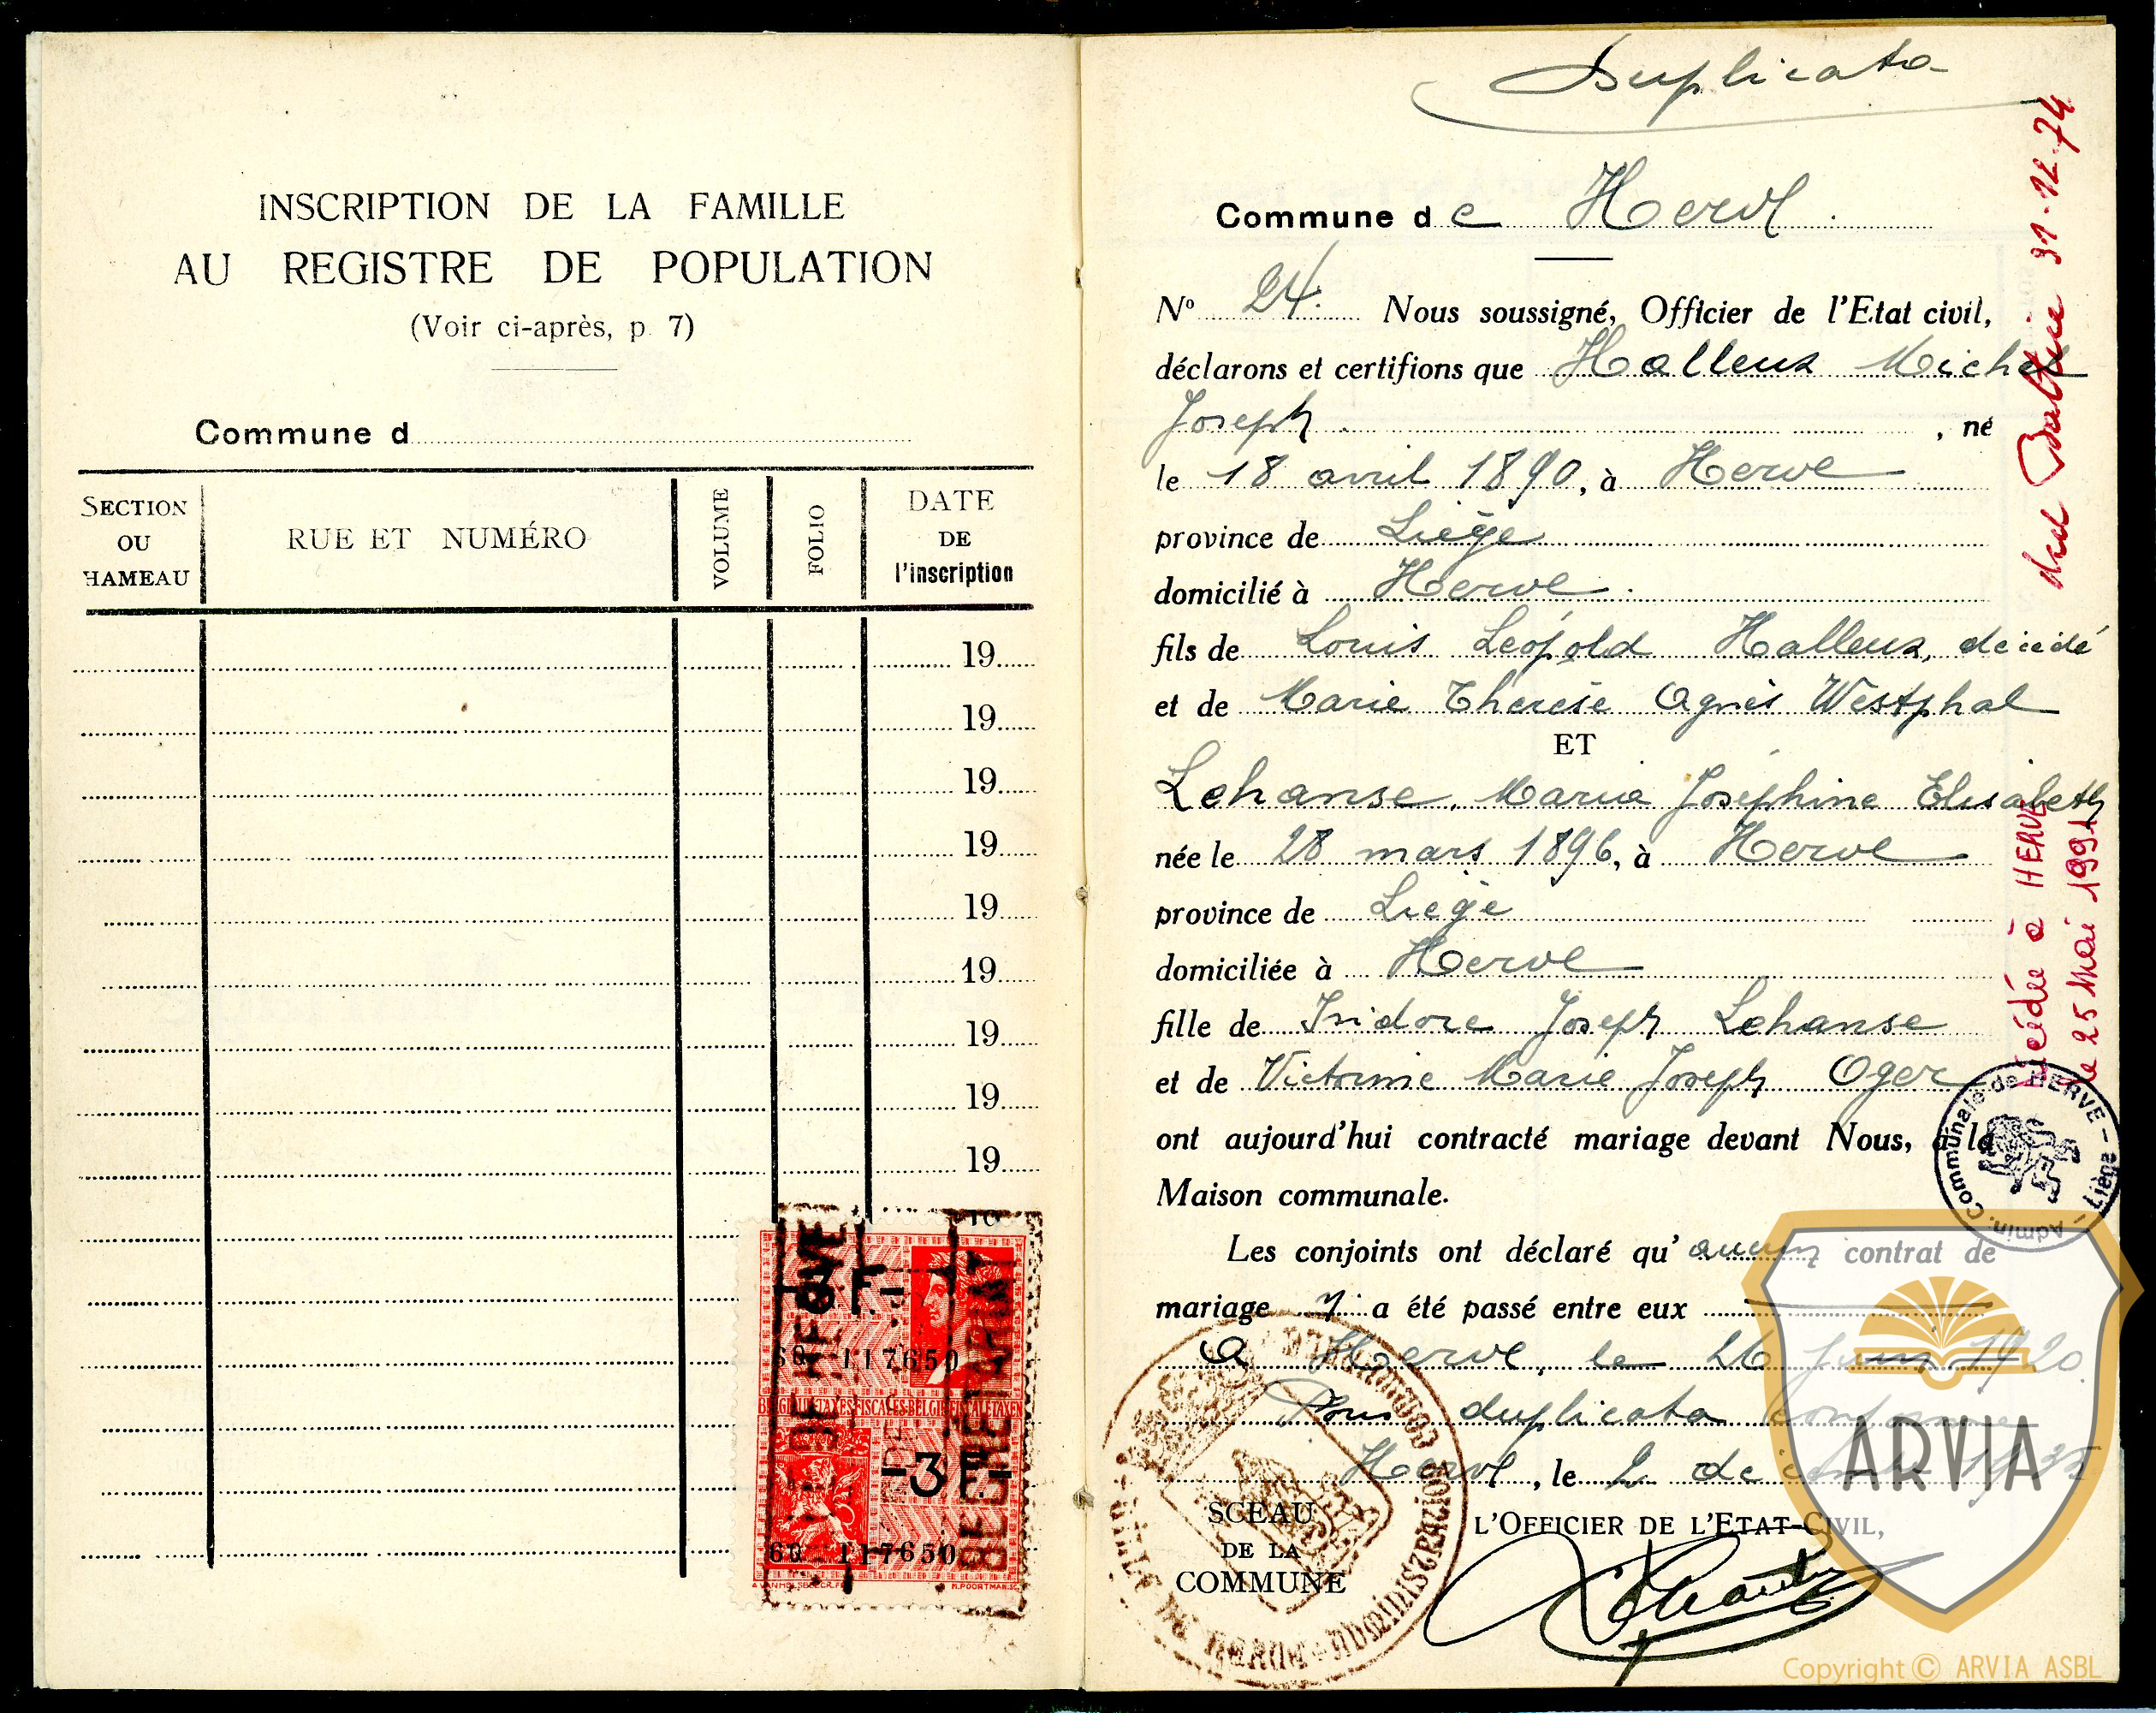 INSCRIPTION DE LA FAMILLE
AU REGISTRE DE POPULATION
(Voir ci-après, p. 7)
Commune d
SECTION OU HAMEAU
RUE ET NUMÉRO
VOLUME
FOLIO
DATE DE l'inscription
19
19
19
19
19
19
19
19
19
19
3 F
60 117650
BELGIQUE TAXES FISCALES-BELGIE FISCALE TAXEN
-3 F-
60 117650
Duplicata
Commune de Herve
N° 24. Nous soussigné, Officier de l'Etat civil,
déclarons et certifions que Halleux Michel
Joseph , né
le 18 avril 1890, à Herve
province de Liège
domicilié à Herve
fils de Louis Léopold Halleux, décédé
et de Marie Thérèse Agnès Westphal
ET
Lehanse, Marie Joséphine Elisabeth
née le 28 mars 1896, à Herve
province de Liège
domiciliée à Herve
fille de Isidore Joseph Lehanse
et de Victorine Marie Joseph Oger
ont aujourd'hui contracté mariage devant Nous, à la
Maison communale.
Les conjoints ont déclaré qu'aucun contrat de
mariage n'a été passé entre eux
A Herve, le 26 juin 1920
Pour duplicata conforme
Herve, le 2 décembre 1935
SCEAU
DE LA
COMMUNE
L'OFFICIER DE L'ETAT-CIVIL,
31.12.74
décédée à HERVE
le 25 Mai 1991
Admin. Communale de HERVE - Liège -
ARVIA
Copyright © ARVIA ASBL